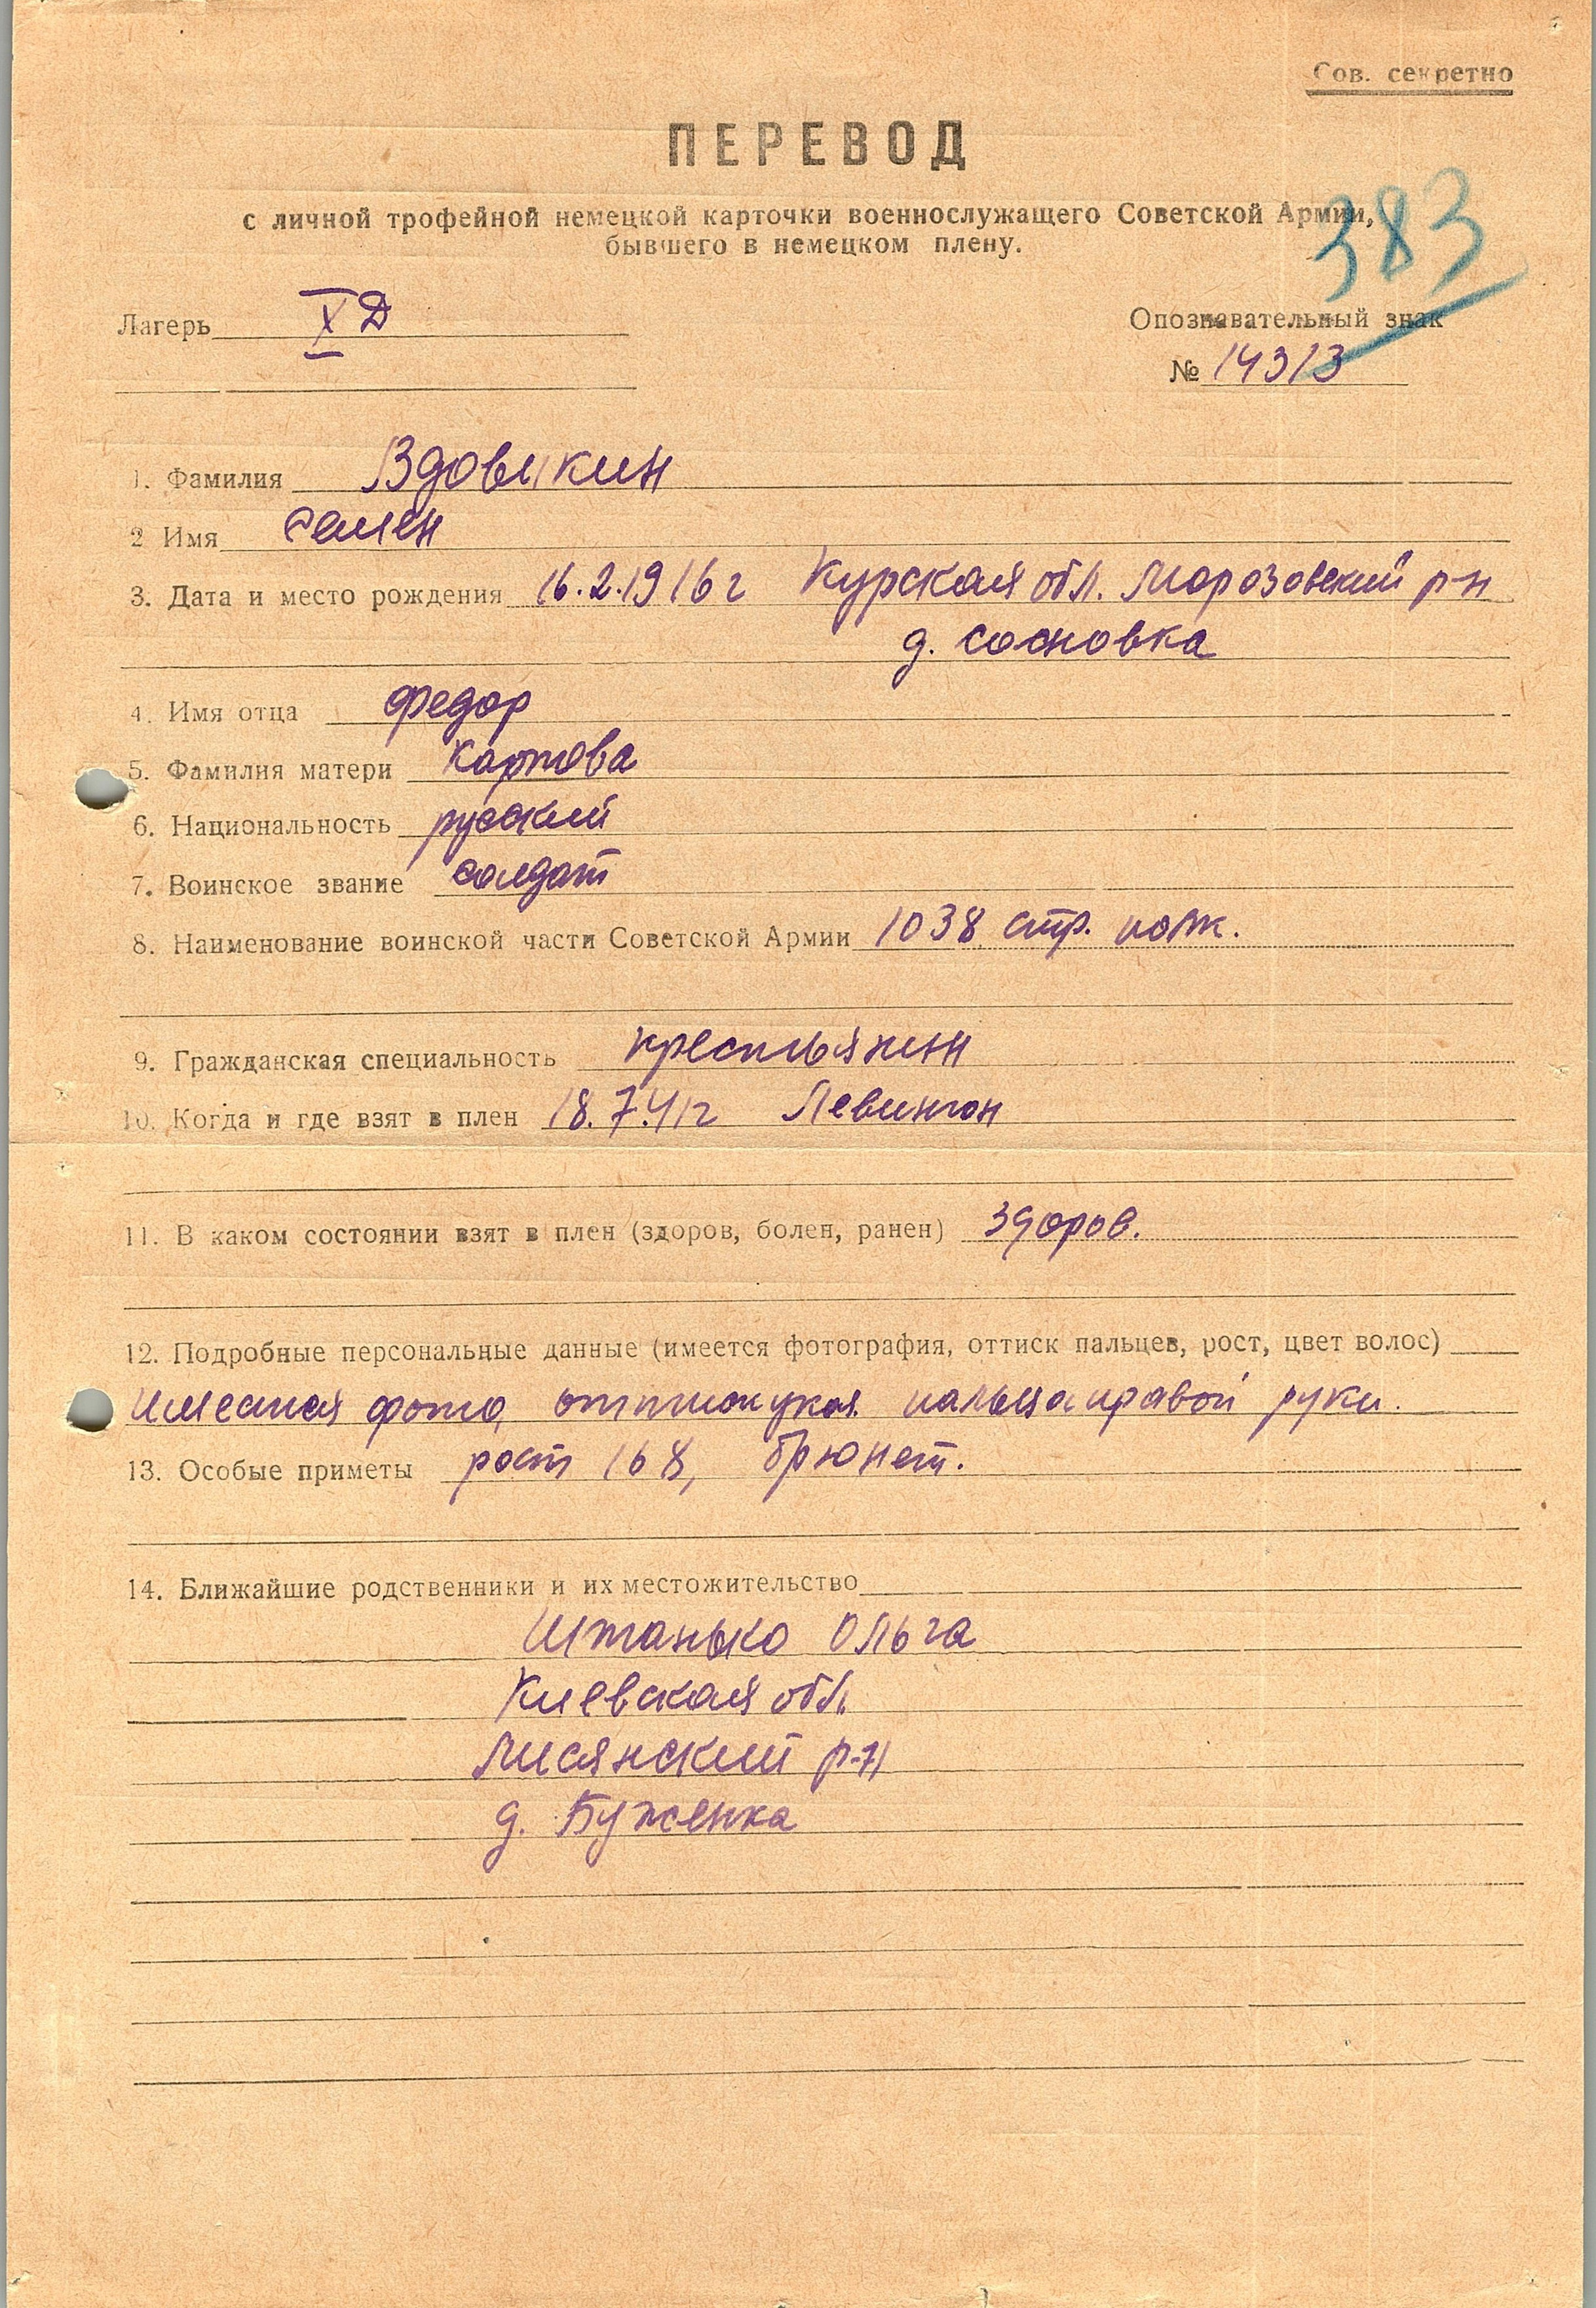 Сов. секретно
ПЕРЕВОД
с личной трофейной немецкой карточки военнослужащего Советской Армии,
бывшего в немецком плену.
383
Лагерь X Д
Опознавательный знак
№ 14313
1. Фамилия Вдовыкин
2 Имя Семен
3. Дата и место рождения 16.2.1916 г Курская обл. Морозовский р-н
д. Сосновка
4. Имя отца Федор
5. Фамилия матери Картова
6. Национальность русский
7. Воинское звание солдат
8. Наименование воинской части Советской Армии 1038 стр. полк.
9. Гражданская специальность крестьянин
10. Когда и где взят в плен 18.7.41г Левинтон
11. В каком состоянии взят в плен (здоров, болен, ранен) здоров.
12. Подробные персональные данные (имеется фотография, оттиск пальцев, рост, цвет волос)
имеется фото, оттиск указ. пальца правой руки.
13. Особые приметы рост 168, брюнет.
14. Ближайшие родственники и их местожительство
Штанько Ольга
Киевская обл.
Лисянский р-н
д. Буженка